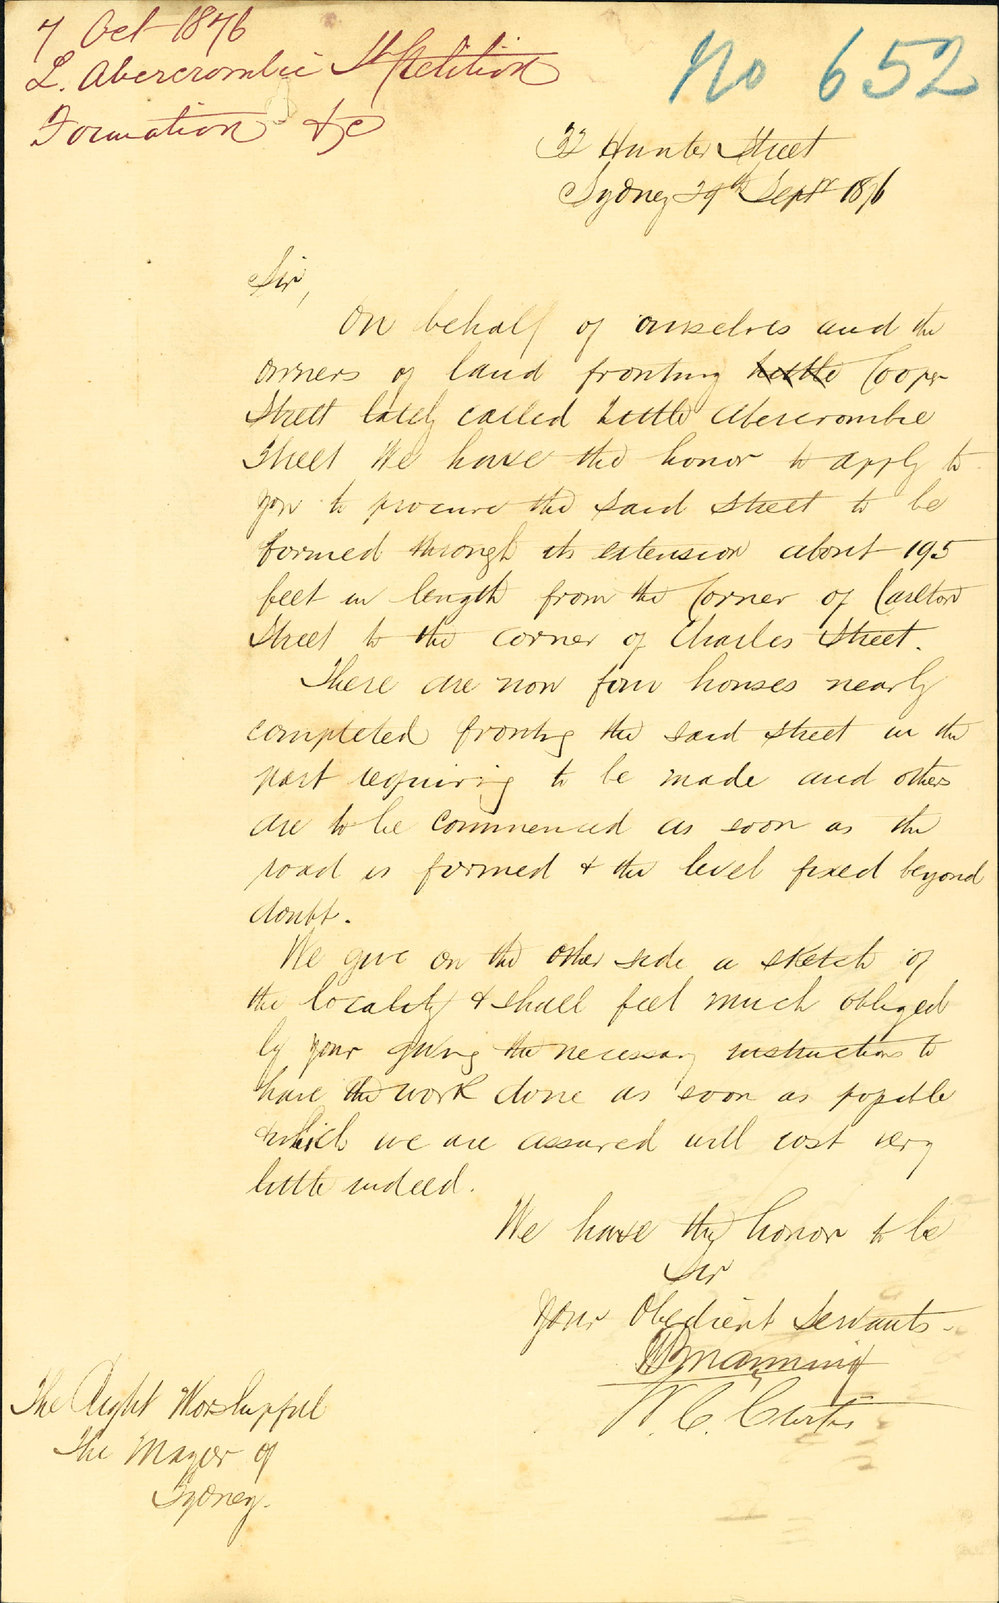 7 Oct 1876
L. Abercrombie St Petition
Formation &c
No 652
32 Hunter Street
Sydney 29th Septr 1876
Sir,
On behalf of ourselves and the
owners of land fronting Little Cooper
Street lately called Little Abercrombie
Street We have the honor to apply to
you to procure the said Street to be
formed through its extension about 195
feet in length from the Corner of Carlton
Street to the corner of Charles Street.
There are now four houses nearly
completed fronting the said street in the
part requiring to be made and others
are to be commenced as soon as the
road is formed & the level fixed beyond
doubt.
We give on the other side a sketch of
the locality & shall feel much obliged
by your giving the necessary instructions to
have the work done as soon as possible
which we are assured will cost very
little indeed.
We have the honor to be
Sir
Your Obedient Servants
Manning
W. C. Curtis
The Right Worshipful
The Mayor of
Sydney.